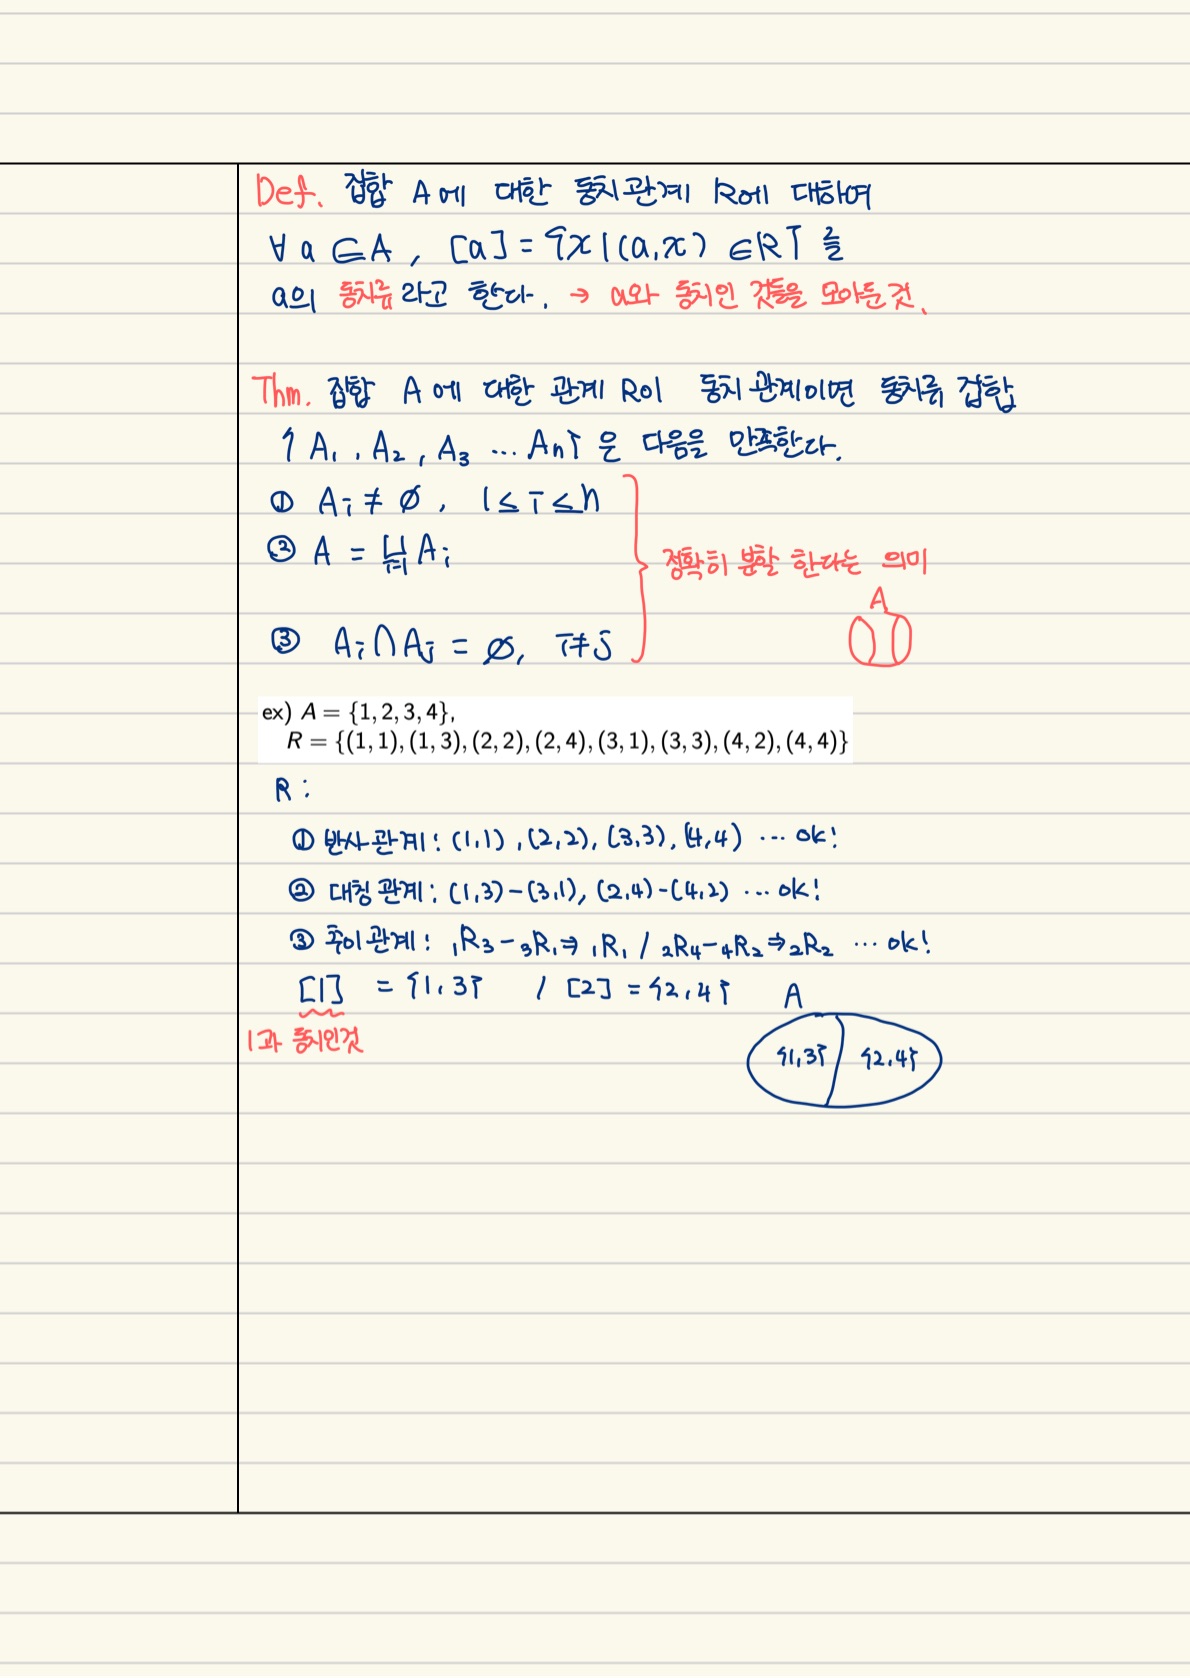 Def. 집합 A에 대한 동치관계 R에 대하여
∀a∈A, [a] = {x|(a,x) ∈R} 를
a의 동치류라고 한다. → a와 동치인 것들을 모아둔 것.
Thm. 집합 A에 대한 관계 R이 동치 관계이면 동치류 집합
{A₁, A₂, A₃ ... An}은 다음을 만족한다.
① Ai ≠ ∅, 1≤i≤n
② A = ⋃ᵢ₌₁ Ai
정확히 분할 한다는 의미
A
③ Ai∩Aj = ∅, i≠j
ex) A = {1, 2, 3, 4},
R = {(1, 1), (1, 3), (2, 2), (2, 4), (3, 1), (3, 3), (4, 2), (4, 4)}
R :
① 반사관계: (1,1), (2,2), (3,3), (4,4) ... ok!
② 대칭관계: (1,3)-(3,1), (2,4)-(4,2) ... ok!
③ 추이관계: ₁R₃-₃R₁⇒₁R₁ / ₂R₄-₄R₂⇒₂R₂ ... ok!
[1] = {1, 3} / [2] = {2, 4} A
1과 동치인것
{1,3} {2,4}